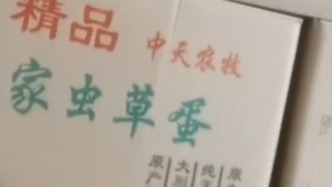 精品 中天农牧
家虫草蛋
原产
大别
纯天
原